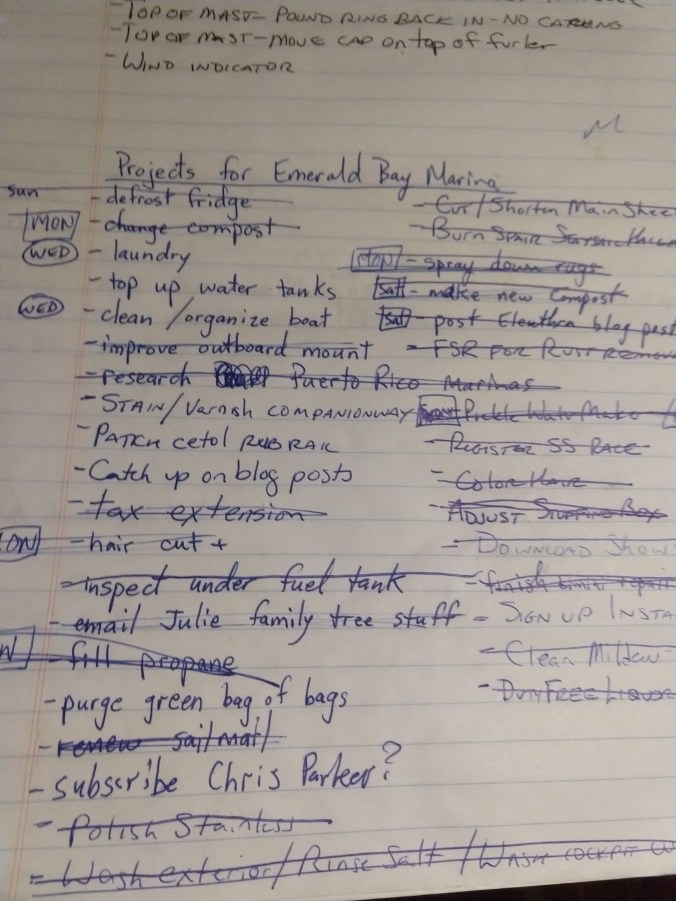 - TOP OF MAST - POUND RING BACK IN - NO CATCHING
- TOP OF MAST - MOVE CAP on top of furler
- WIND INDICATOR
Projects for Emerald Bay Marina
sun - defrost fridge
MON - change compost
WED - laundry
- top up water tanks
WED - clean / organize boat
- improve outboard mount
- research Puerto Rico Marinas
- STAIN / Varnish COMPANIONWAY
- PATCH cetol RUB RAIL
- Catch up on blog posts
- tax extension
ON - hair cut +
- inspect under fuel tank
- email Julie family tree stuff
- fill propane
- purge green bag of bags
- renew sailmail
- subscribe Chris Parker?
- Polish Stainless
- Wash exterior / Rinse Salt / WASH COCKPIT
- CUT / Shorten Main Shee
- BURN
MON - spray down rugs
sat - make new compost
sat - post Eleuthra blog post
- FSR FOR RUST REMOV
Pickle Water Make
- REGISTER SS RACE
- Color Hair
- ADJUST STUFFING BOX
- DOWNLOAD SHOW
- finish repair
- SIGN UP INSTA
- Clean Mildew
- DUTY FREE LIQUOR